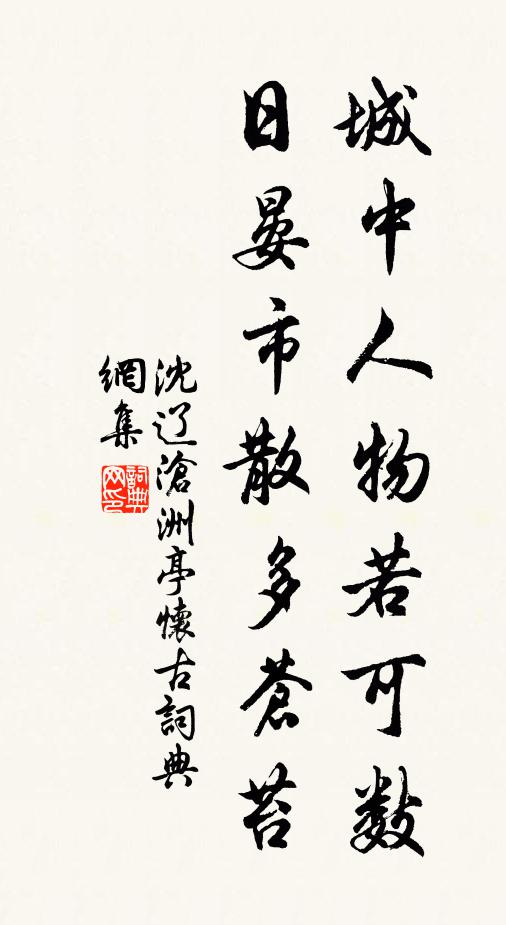 城中人物若可數
日晏市散多蒼苔
沈辽滄洲亭懷古詞典
網集
詞典
网印